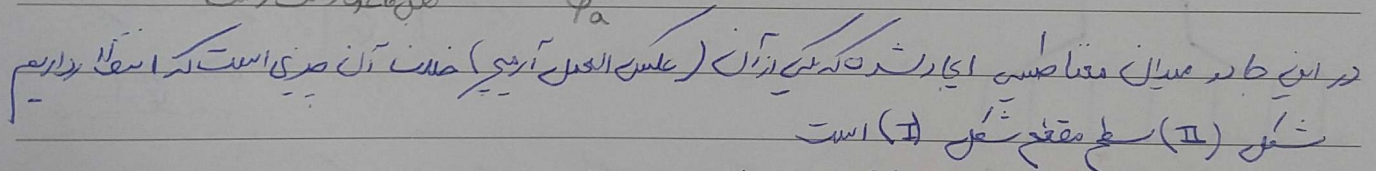 φa
در این جا دو میدان مغناطیسی ایجاد شده که یکی از آن (عکس العمل آرمیچر) خلاف آن چیزی است که انتظار داریم
شکل (II) سطح مقطع شکل (I) است